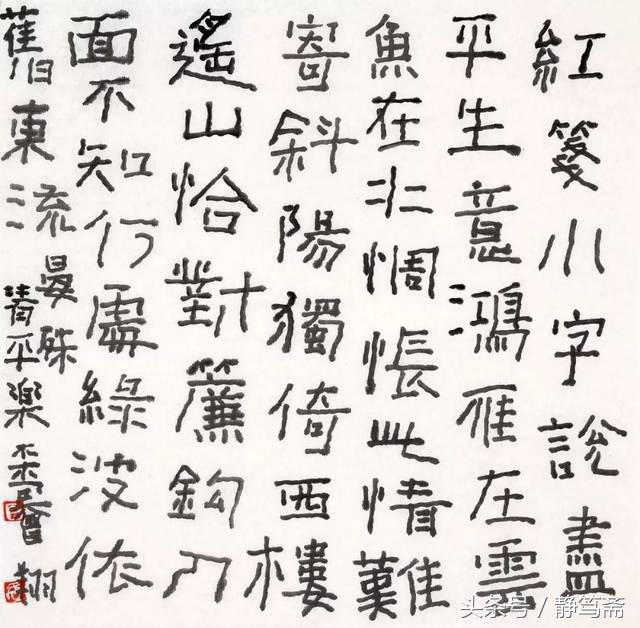 紅箋小字說盡
平生意鴻雁在雲
魚在水惆悵此情難
寄斜陽獨倚西樓
遙山恰對簾鉤人
面不知何處綠波依
舊東流
晏殊
清平樂
翔
头条号/静笃斋